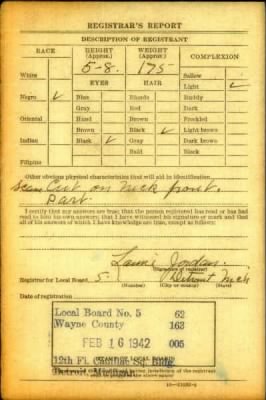 REGISTRAR'S REPORT
DESCRIPTION OF REGISTRANT
RACE HEIGHT (Approx.) WEIGHT (Approx.) COMPLEXION
5-8. 175
White Sallow
EYES HAIR Light ✓
Negro ✓ Blue Blonde Ruddy
Gray Red Dark
Oriental Hazel Brown Freckled
Brown Black ✓ Light brown
Indian Black ✓ Gray Dark brown
Bald Black
Filipino
Other obvious physical characteristics that will aid in identification
Scar Cut on Neck front.
Part.
I certify that my answers are true; that the person registered has read or has had
read to him his own answers; that I have witnessed his signature or mark and that
all of his answers of which I have knowledge are true, except as follows:
Jordan
(Signature of registrar)
Registrar for Local Board 5 Detroit Mich
(Number) (City or county) (State)
Date of registration
Local Board No. 5 62
Wayne County 163
FEB 16 1942 005
12th Fl. Cadillac Sq. Bldg.
(STAMP OF LOCAL BOARD)
Detroit Michigan